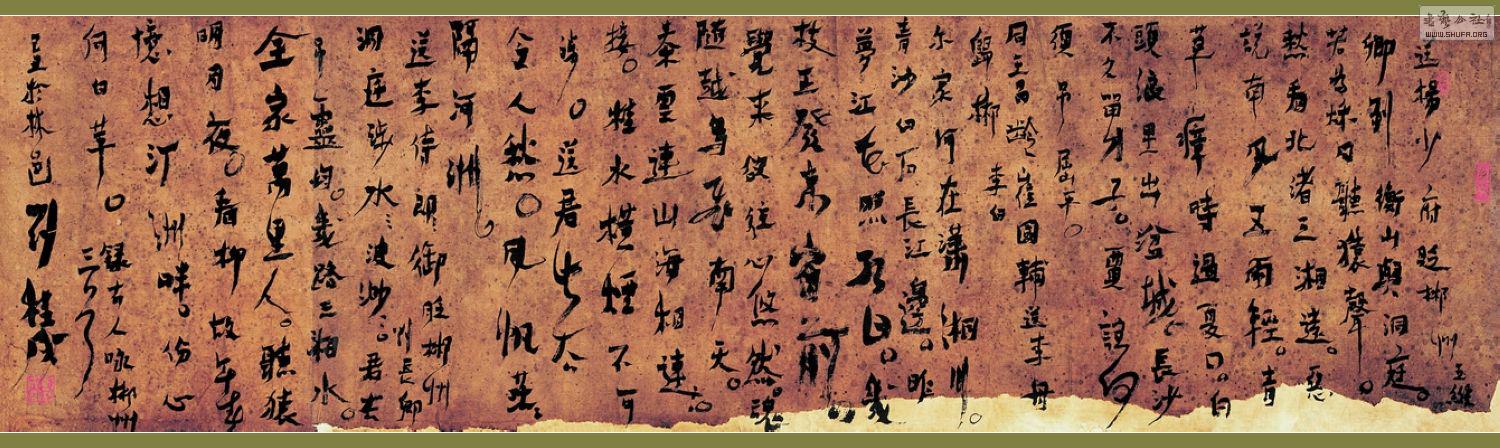 送楊少府貶郴州 王維
卿到衡山與洞庭。
若為秌月聽猿聲。
愁看北渚三湘遠。惡
說南風五兩輕。青
草瘴時過夏口。白
頭浪里出湓城。長沙
不久留才子。賈誼何
須吊屈平。
同王昌齡崔國輔送李舟
歸郴 李白
尔家何在瀟湘川。
青沙白石長江邊。昨
夢江花照江日。幾
枝正發東窗前。
覺來欲往心悠然。魂
隨越鳥飛南天。
秦雲連山海相連。
接。桂水橫煙不可
涉。送君此去
令人愁。風帆茫々
隔河洲
送李侍御貶郴州 長卿
洞庭波渺。君去
弔靈均。幾路三湘水。
全家萬里人。聽猿
明月夜。看柳故年春
憶想汀洲畔。份心
何日草。錄古人咏郴州
於林邑 桂成
WWW.SHUFA.ORG